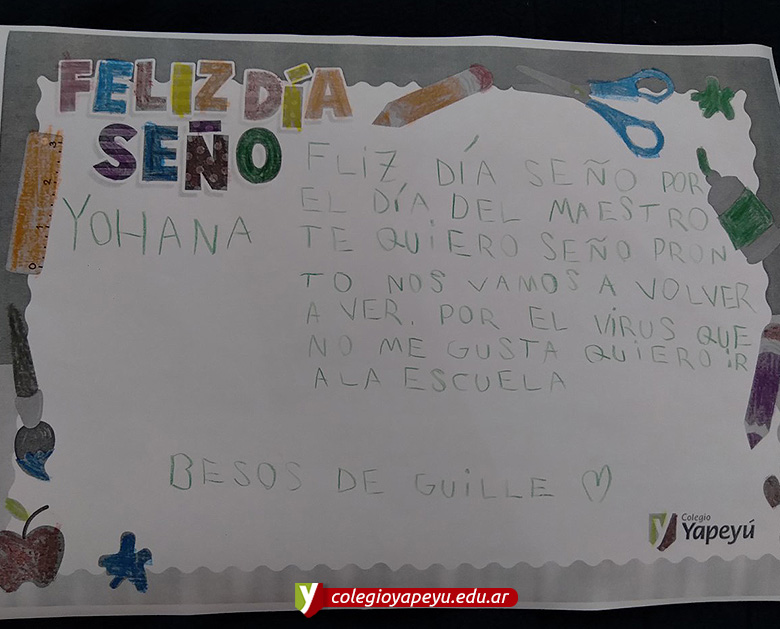 FELIZ DÍA
SEÑO
YOHANA
FLIZ DÍA SEÑO POR
EL DÍA DEL MAESTRO
TE QUIERO SEÑO PRON
TO NOS VAMOS A VOLVER
A VER. POR EL VIRUS QUE
NO ME GUSTA QUIERO IR
A LA ESCUELA
BESOS DE GUILLE
0 1 2 3
Colegio
Yapeyú
colegioyapeyu.edu.ar